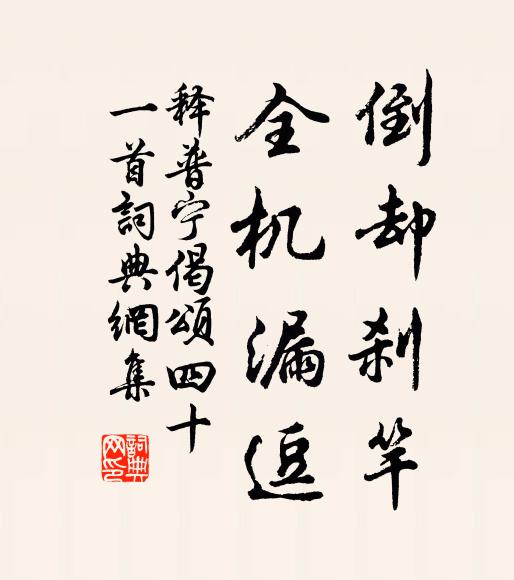 倒却刹竿
全机漏逗
释普宁偈颂四十
一首詞典網集
詞典网印